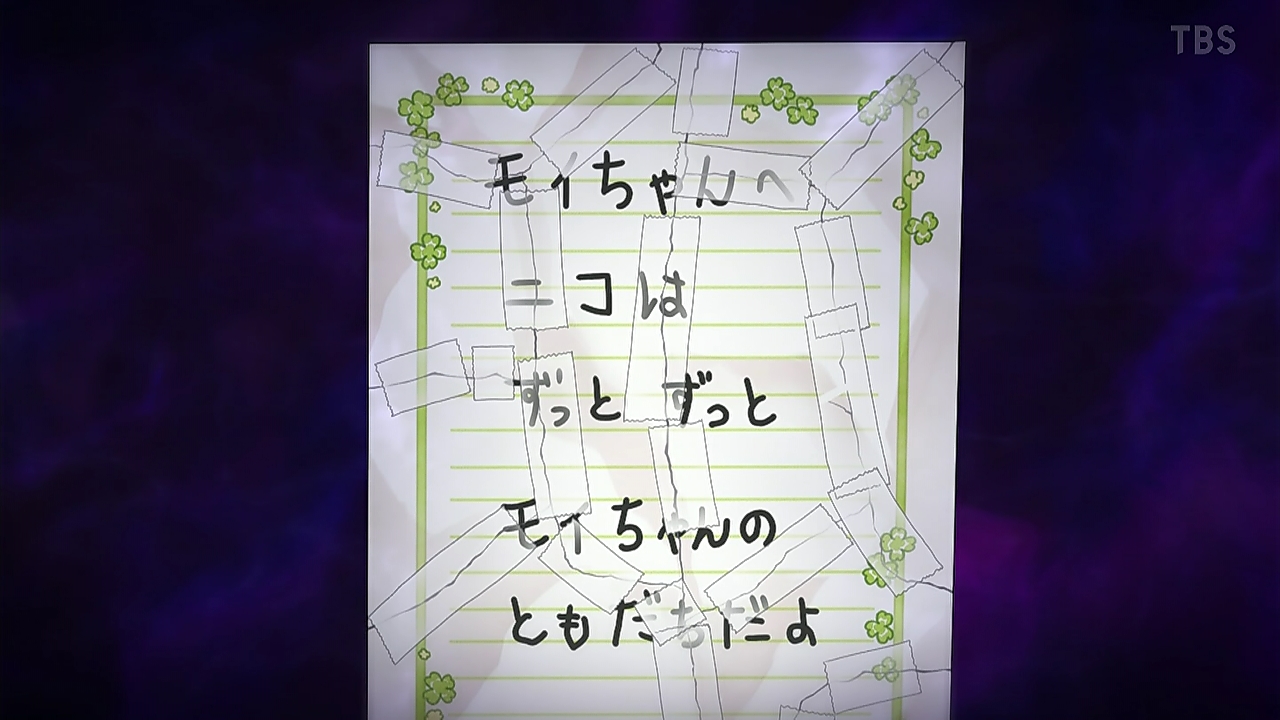 TBS
モイちゃんへ
ニコは
ずっと ずっと
モイちゃんの
ともだちだよ